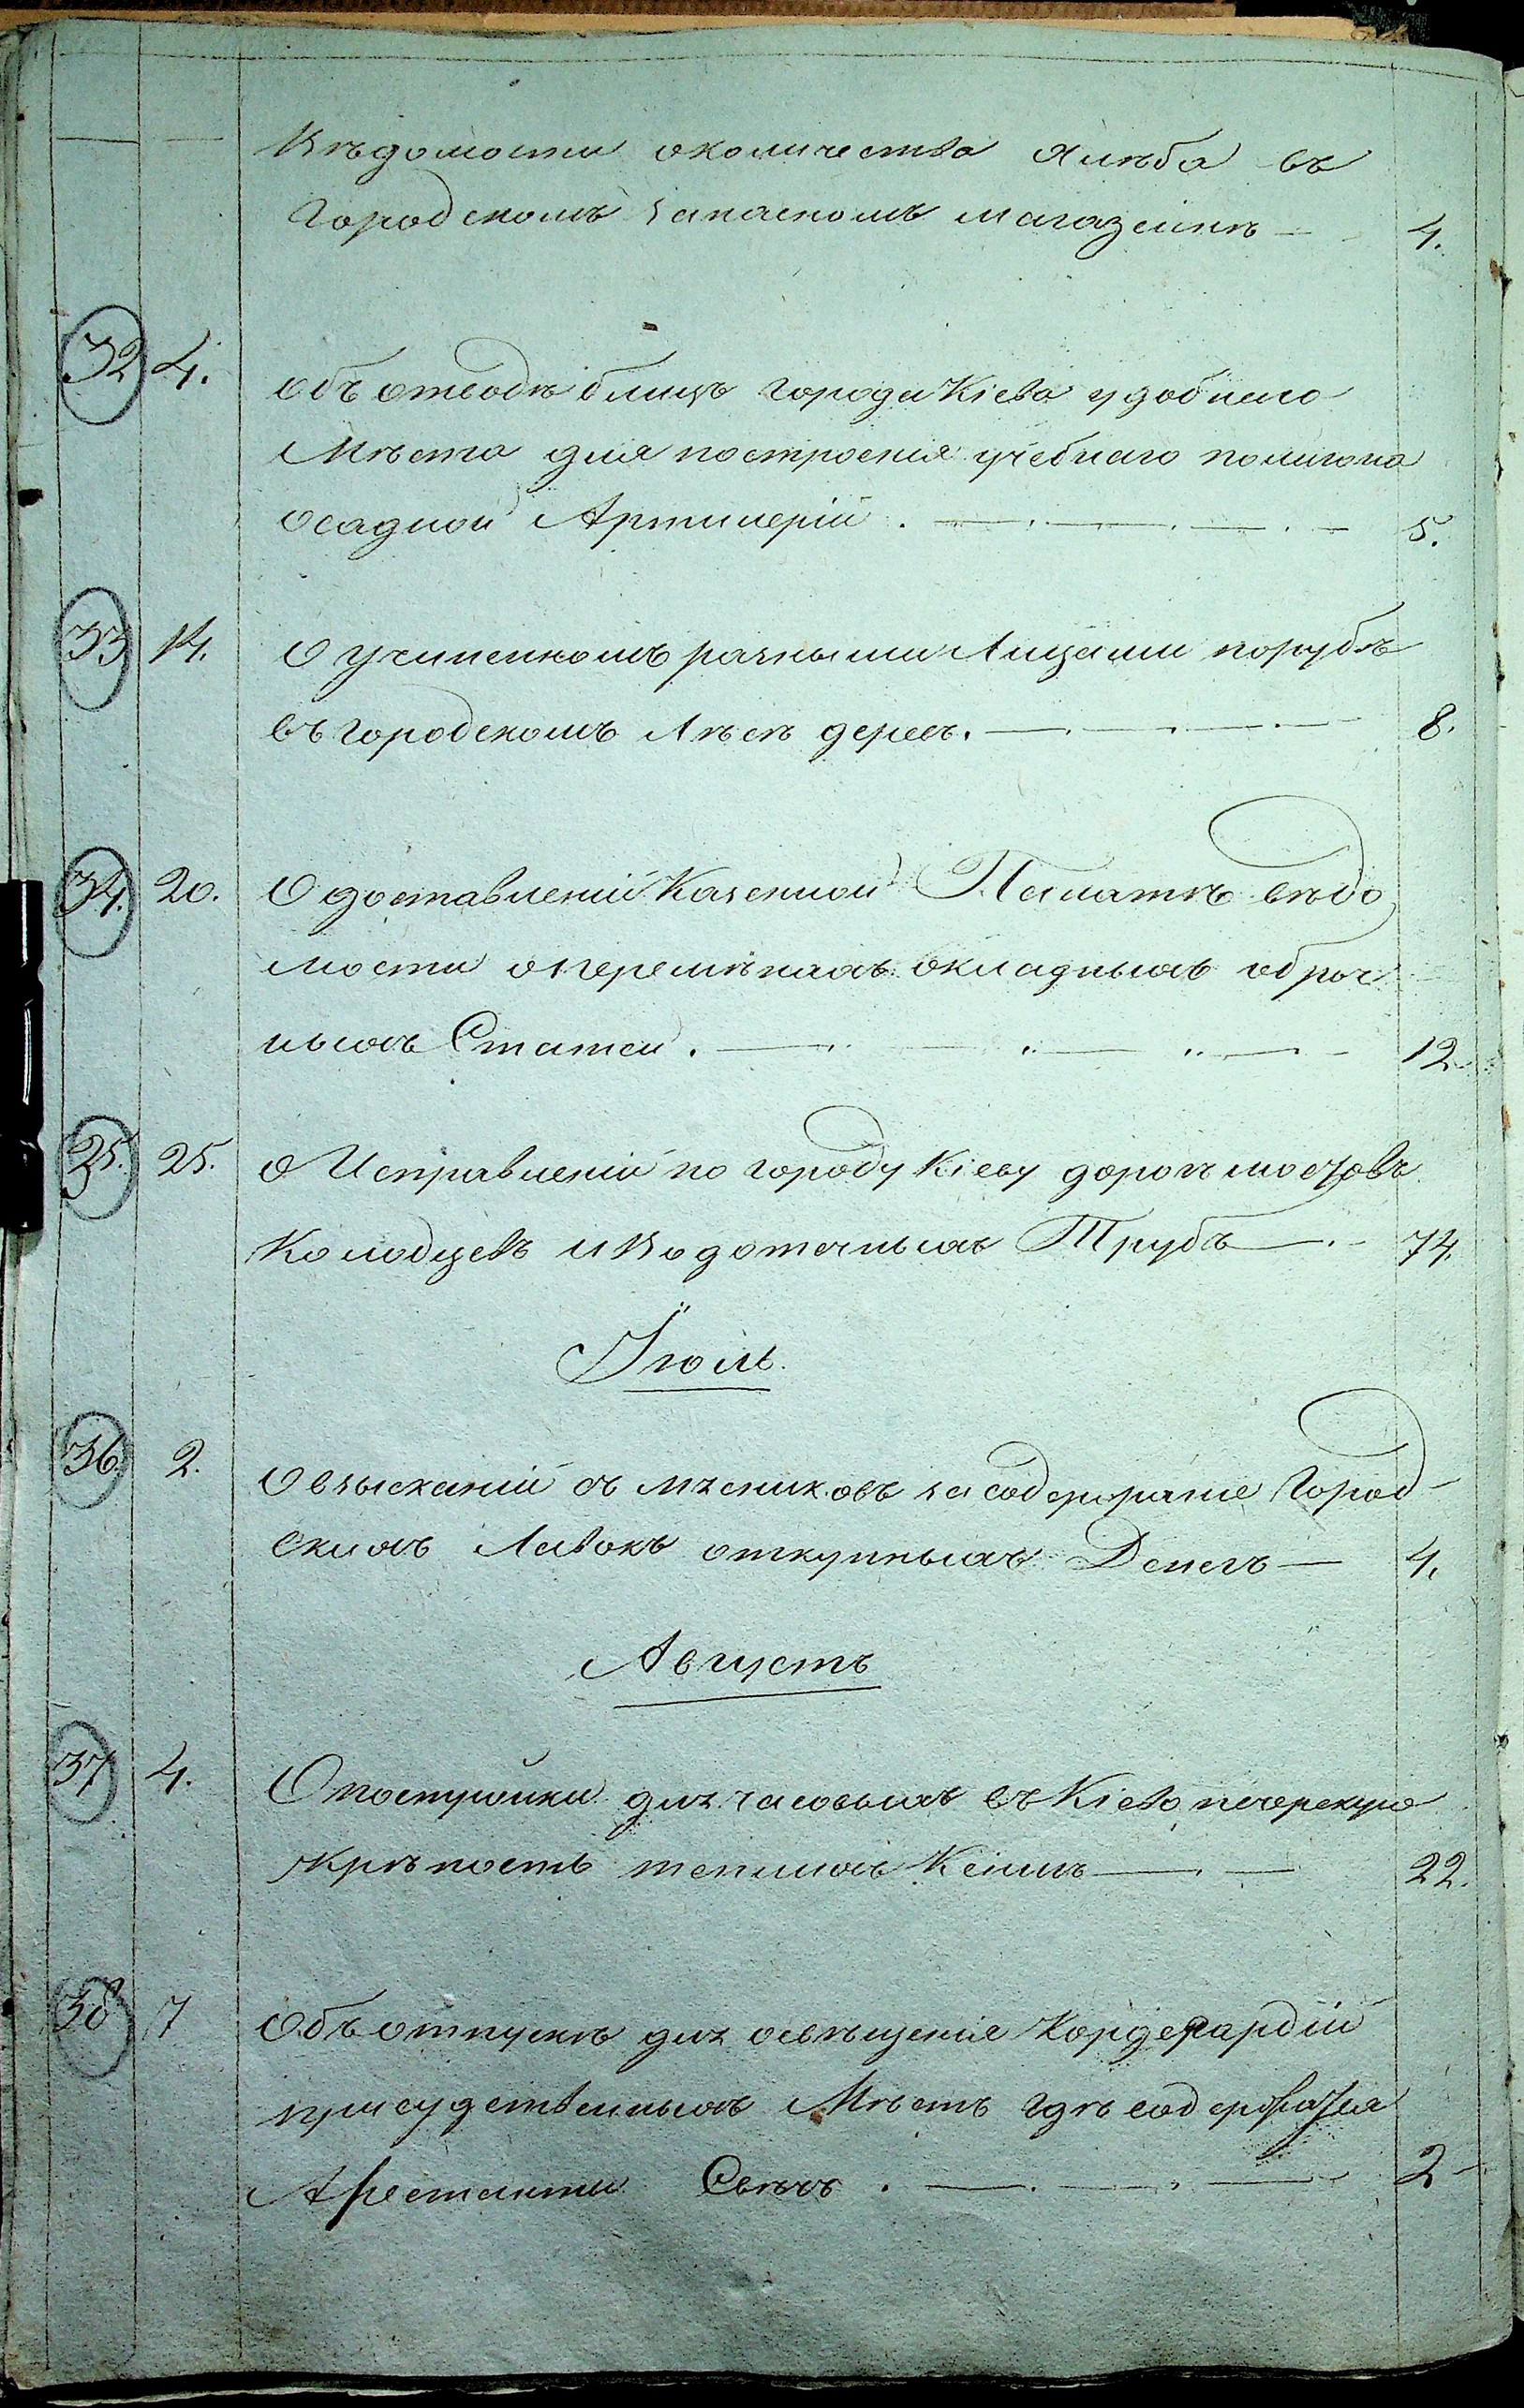 Вѣдомости околичества хлѣба въ
Городскомъ запасномъ магазеинѣ — 4.
32 4. Объ отводѣ близъ города Кіева удобнаго
мѣста для построенія учебнаго полигона
осадной Артилеріи . — . — . — . — 5.
33 14. О учиненномъ разными Лицами порубѣ
въ городскомъ Лѣсѣ дерев. — . — . — . — 8.
34. 20. О доставленіи Казенной Палатѣ вѣдо
мости о перемѣнахъ окладныхъ оброч
ныхъ Статей . — . — . — . — 12
35. 25. О Исправленіи по городу Кіеву дорогъ мостовъ
Колодцевъ и Водоточныхъ Трубъ — . — 74.
Іюль.
36. 2. О взысканіи съ мясниковъ за содержаніе Город-
скихъ Лавокъ откупныхъ Денегъ — 4.
Августъ
37 4. О постройки для часовыхъ въ Кіево печерскую
крѣпость теплихъ Кеинъ — . — 22.
38 7 Объ отпускѣ для освѣщенія Кордегардіи
присудственныхъ Мѣстъ гдѣ содержатся
Арестанти Свѣчъ . — . — . — 2 -